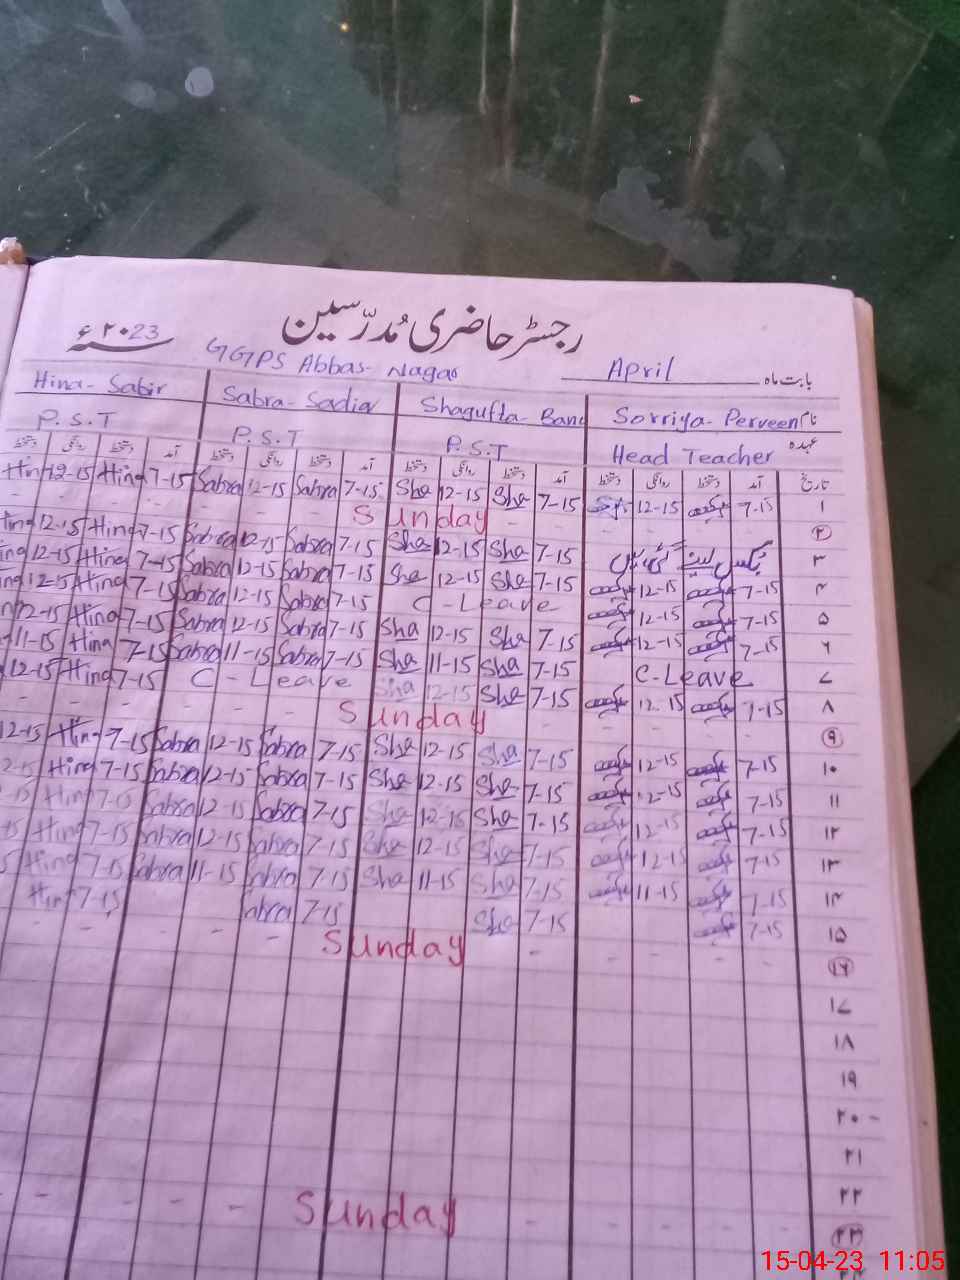 رجسٹر حاضری مُدرّسین
۲۰23ء
GGPS Abbas Nagar
بابت ماہ April
نام Sorriya Perveen Shagufta Bano Sabra Sadiq Hina Sabir
عہدہ Head Teacher P.S.T P.S.T P.S.T
تاریخ آمد دستخط روانگی دستخط آمد دستخط روانگی دستخط آمد دستخط روانگی دستخط آمد دستخط روانگی دستخط
۱ 7-15 12-15 7-15 Sha 12-15 Sha 7-15 Sabra 12-15 Sabra 7-15 Hina 12-15 Hin
۲ Sunday
۳ 7-15 Sha 12-15 Sha 7-15 Sabra 12-15 Sabra 7-15 Hina 12-15 Hina
۴ 7-15 12-15 7-15 Sha 12-15 Sha 7-15 Sabra 12-15 Sabra 7-15 Hina 12-15 ina
۵ 7-15 12-15 C-Leave 7-15 Sabra 12-15 Sabra 7-15 Hina 12-15 ina
۶ 7-15 12-15 7-15 Sha 12-15 Sha 7-15 Sabra 12-15 Sabra 7-15 Hina 12-15
۷ C-Leave 7-15 Sha 11-15 Sha 7-15 Sabra 11-15 Sabra 7-15 Hina 11-15
۸ 7-15 12-15 7-15 Sha 12-15 Sha C-Leave 7-15 Hina 12-15
۹ Sunday
۱۰ 7-15 12-15 7-15 Sha 12-15 Sha 7-15 Sabra 12-15 Sabra 7-15 Hina 12-15
۱۱ 7-15 12-15 7-15 Sha 12-15 Sha 7-15 Sabra 12-15 Sabra 7-15 Hina 2-15
۱۲ 7-15 12-15 7-15 Sha 12-15 Sha 7-15 Sabra 12-15 Sabra 7-15 Hina -15
۱۳ 7-15 12-15 7-15 Sha 12-15 Sha 7-15 Sabra 12-15 Sabra 7-15 Hina -15
۱۴ 7-15 11-15 7-15 Sha 11-15 Sha 7-15 Sabra 11-15 Sabra 7-15 Hina 5
۱۵ 7-15 7-15 Sha 7-15 Sabra 7-15 Hina
۱۶ Sunday
۱۷
۱۸
۱۹
۲۰
۲۱
۲۲
۲۳ Sunday
15-04-23 11:05